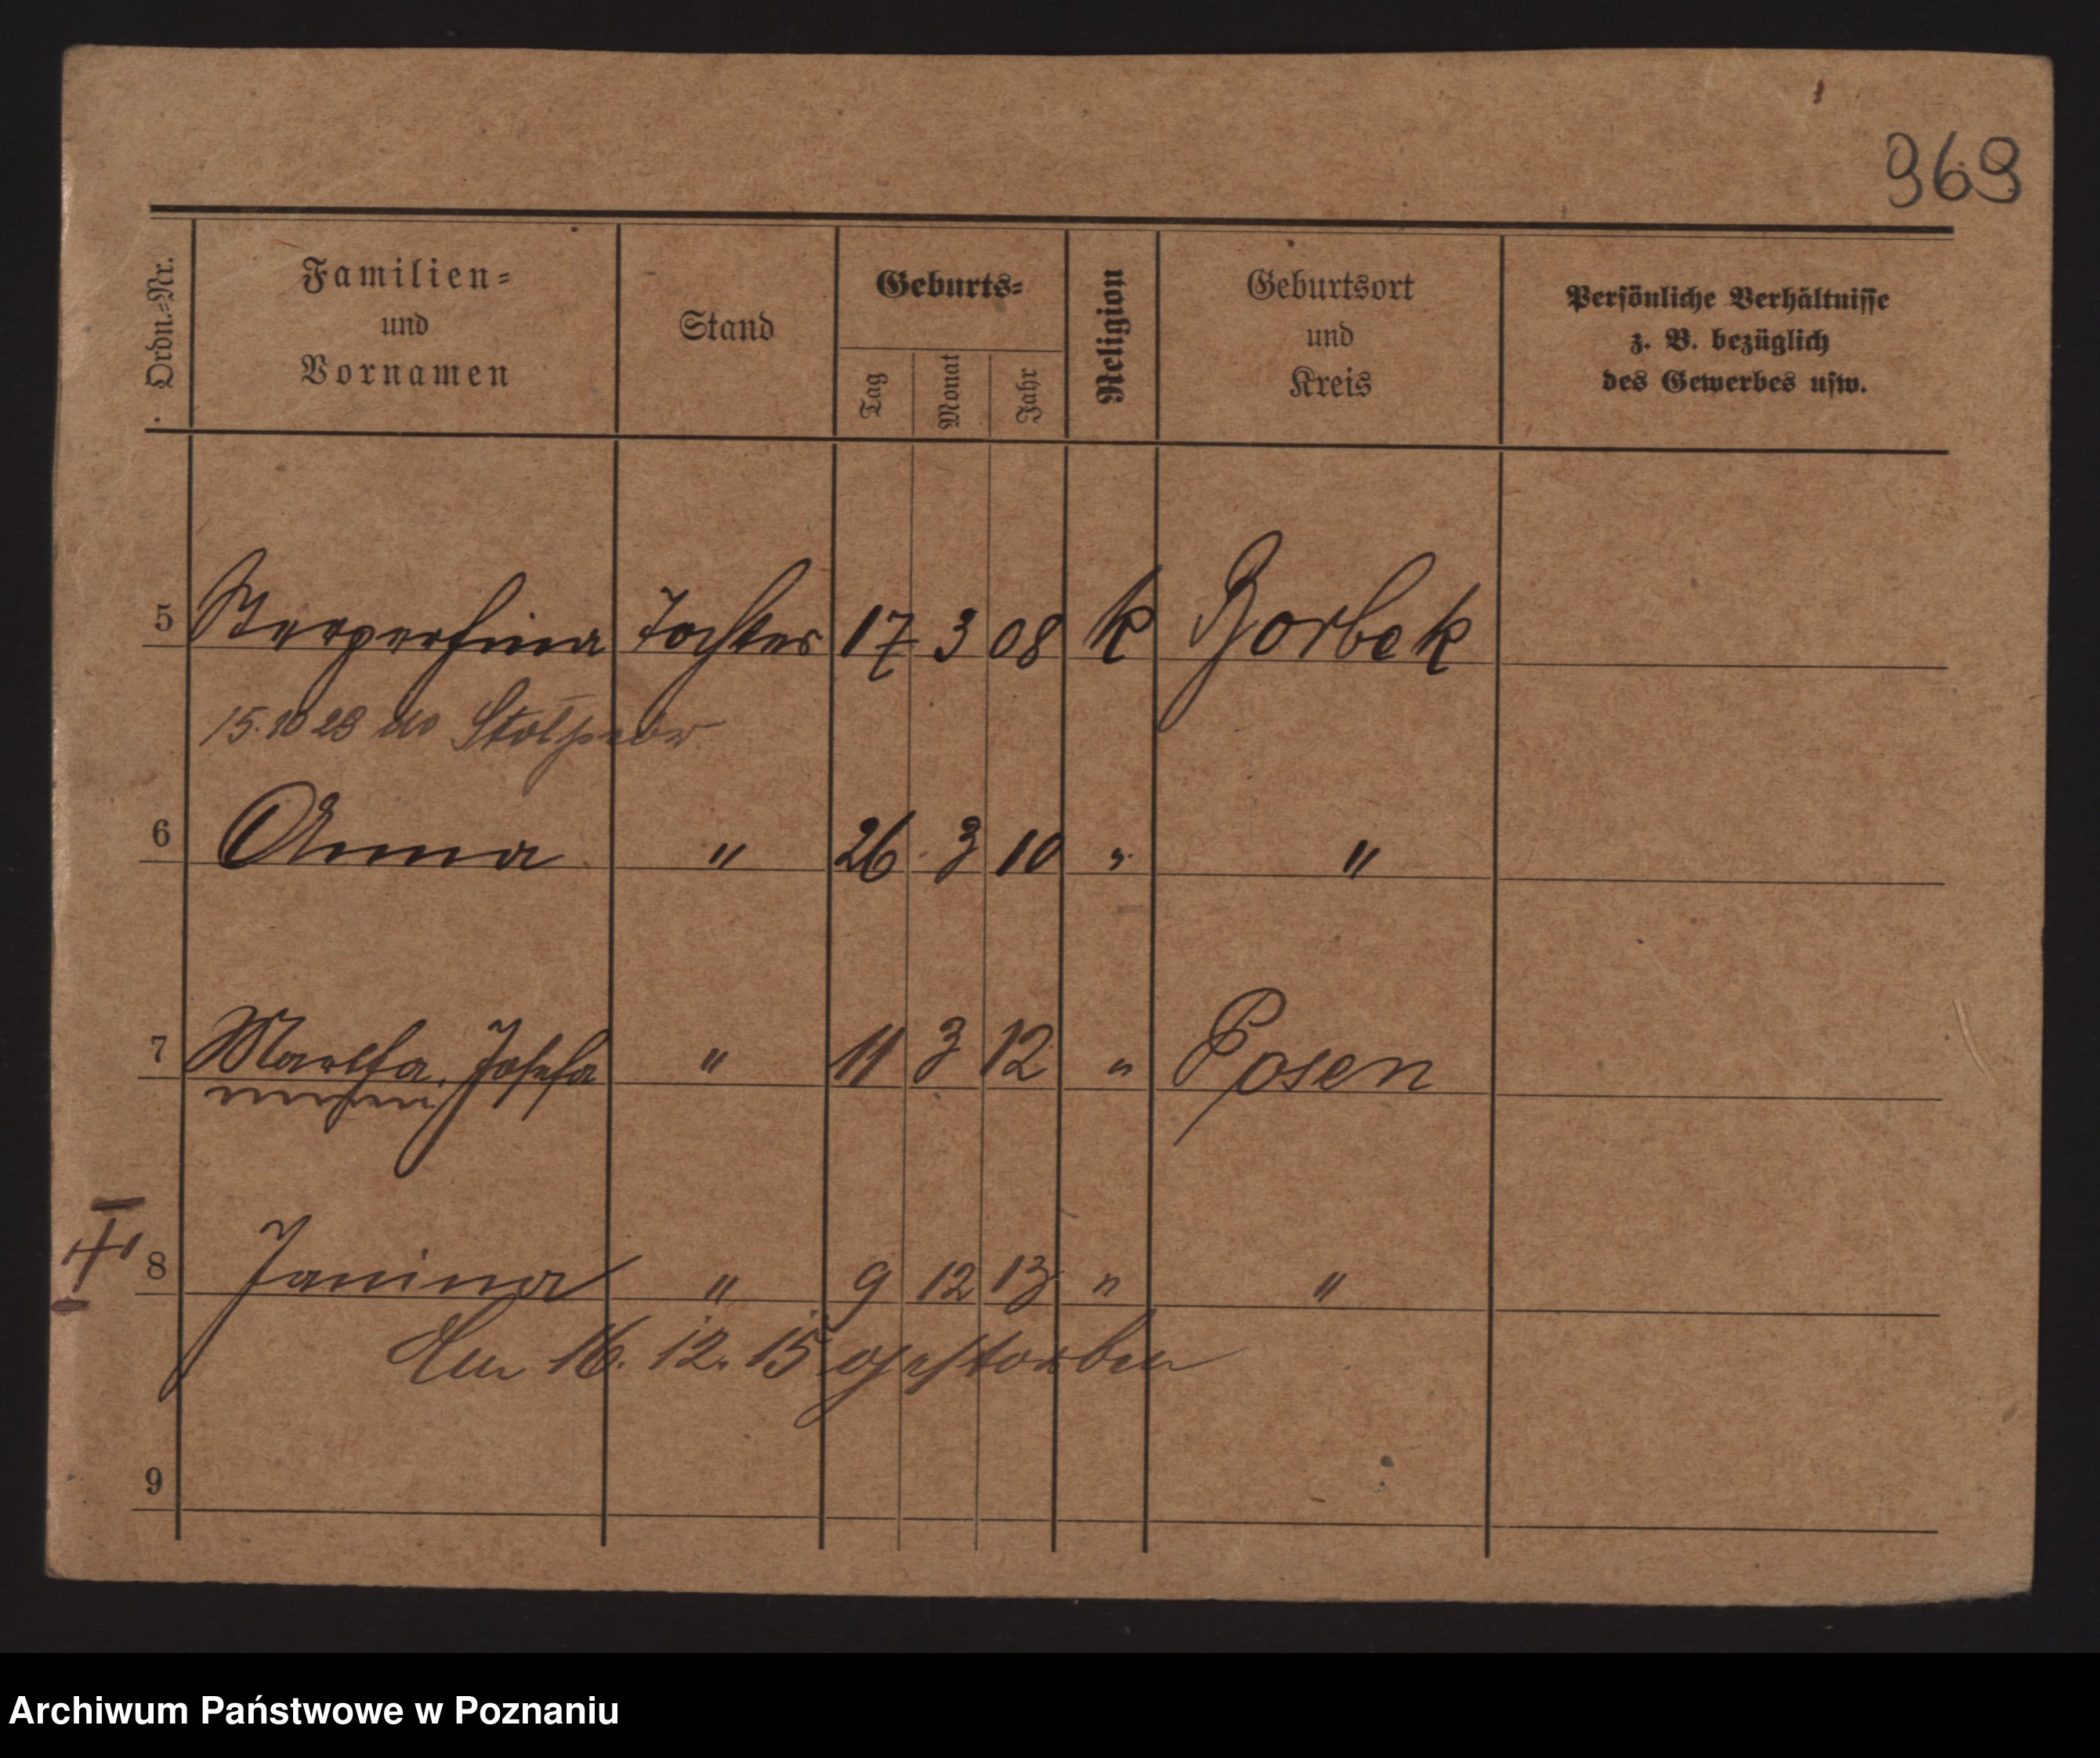 969
Ordn.=Nr.
Familien=
und
Vornamen
Stand
Geburts=
Tag
Monat
Jahr
Religion
Geburtsort
und
Kreis
Persönliche Verhältnisse
z. B. bezüglich
des Gewerbes usw.
5 Tochter 17 3 08 k Borbek
15.10 29 do
6 Anna " 26 3 10 " "
7 Martha Josefa " 11 3 12 " Posen
8 Janina " 9 12 13 " "
Am 16. 12. 15 gestorben
9
Archiwum Państwowe w Poznaniu